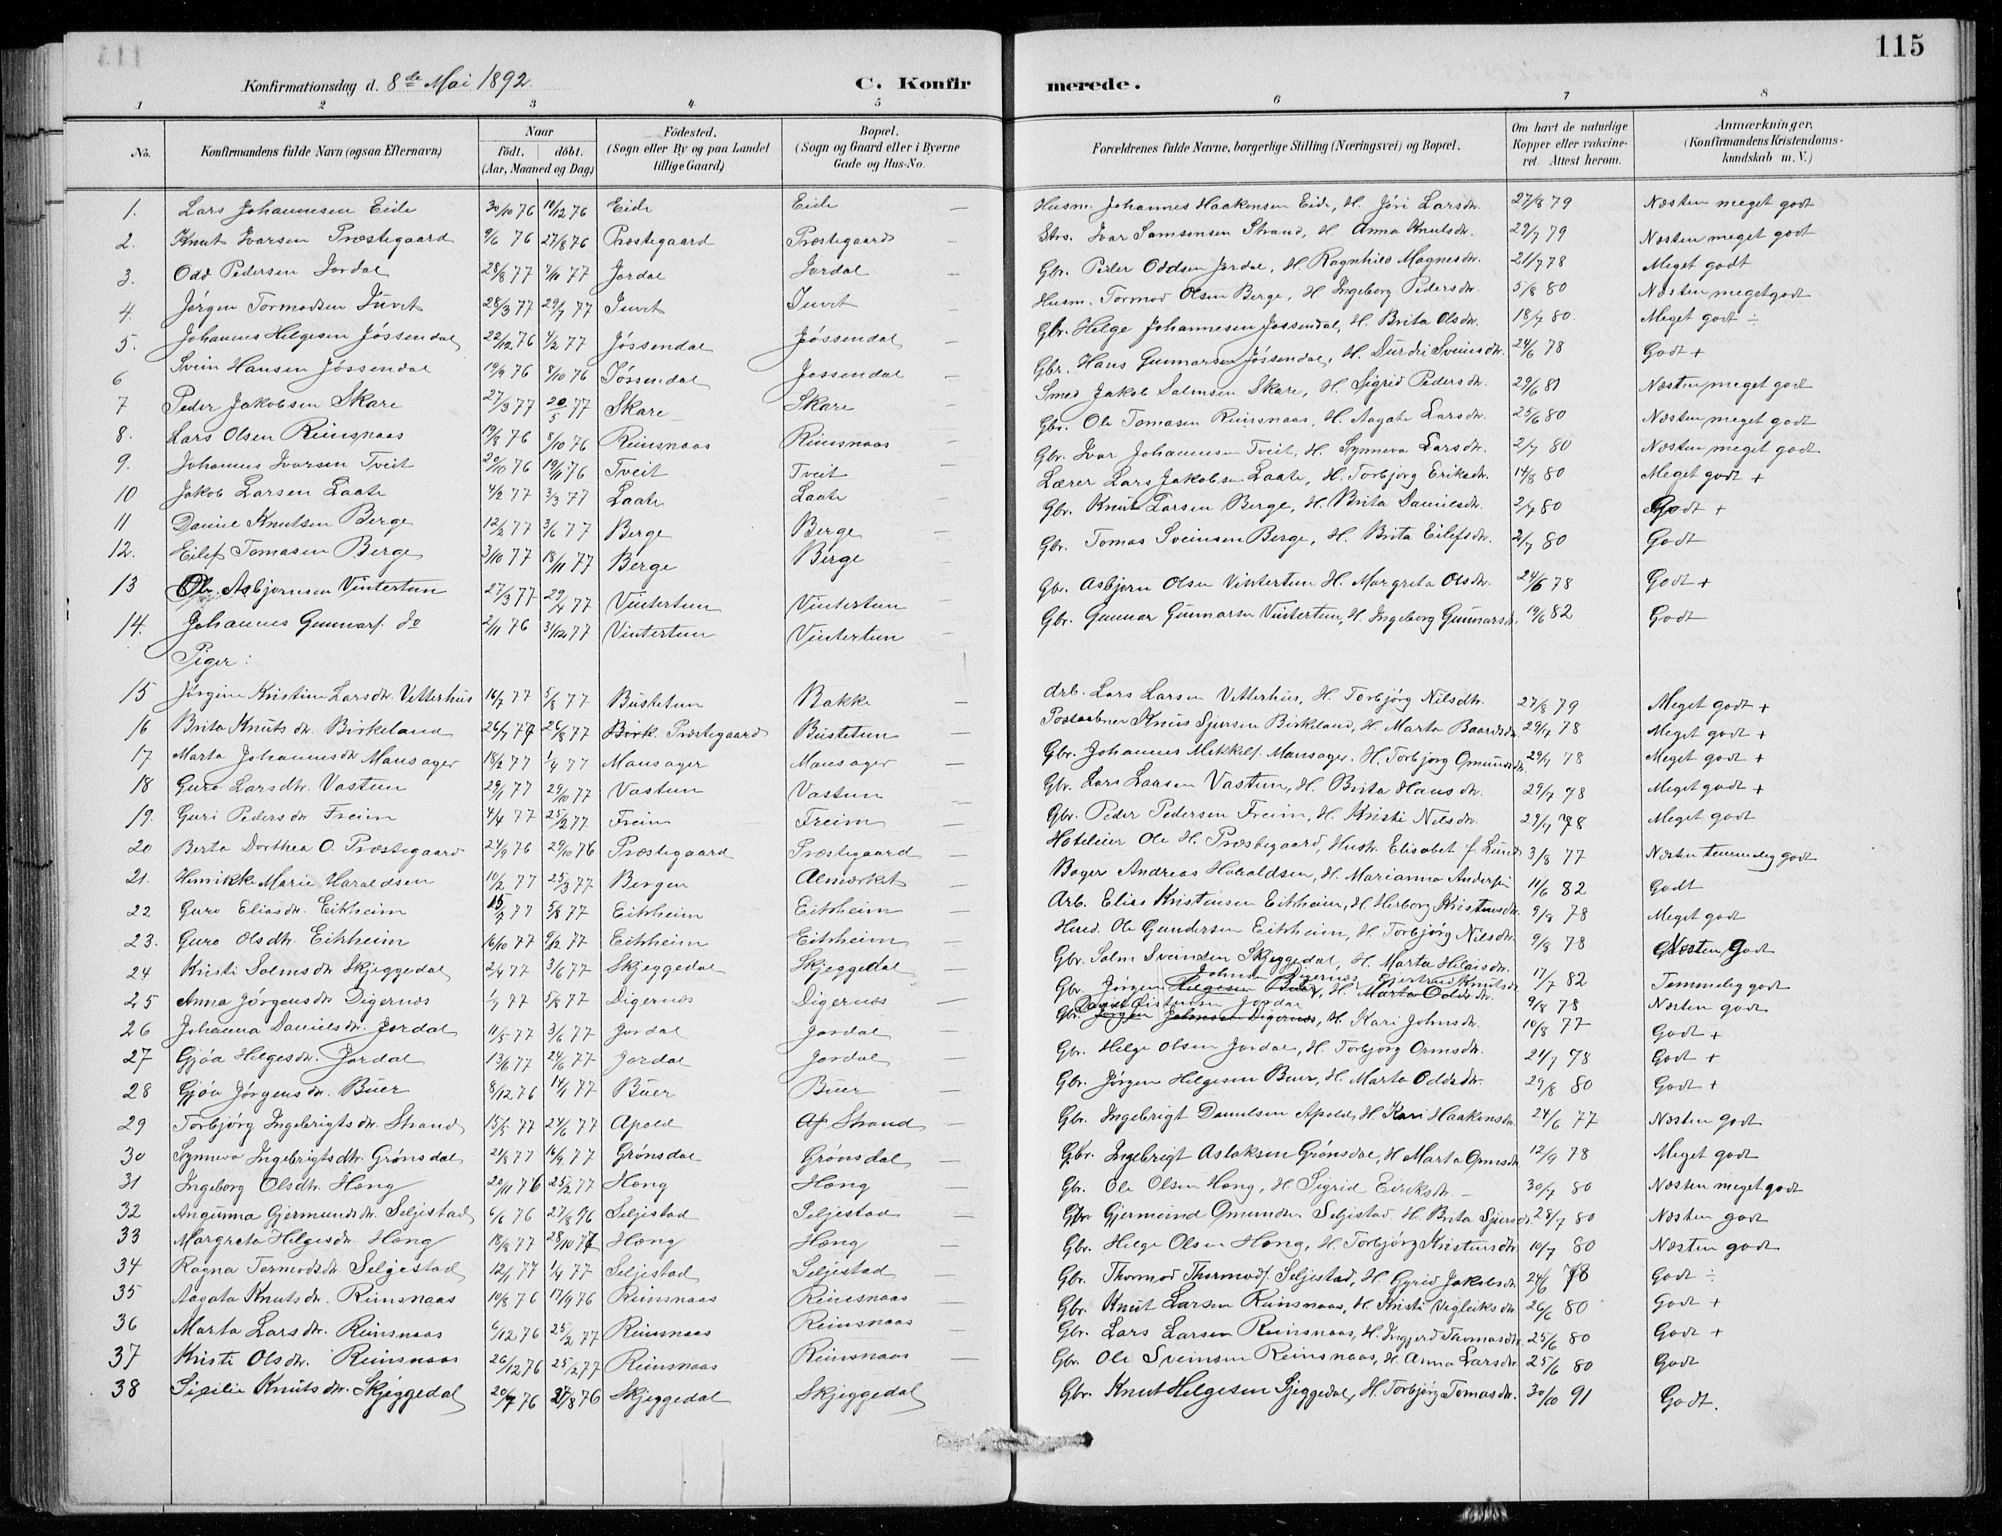 115
Konfirmationsdag d. 8de Mai 1892. C. Konfirmerede.
1 2 3 4 5 6 7 8
No. Konfirmandens fulde Navn (ogsaa Efternavn) Naar født. døbt. (Aar, Maaned og Dag) Fødested. (Sogn eller By og paa Landet tillige Gaard) Bopæl. (Sogn og Gaard eller i Byerne Gade og Hus-No. Forældrenes fulde Navne, borgerlige Stilling (Næringsvei) og Bopæl. Om havt de naturlige Kopper eller vakcineret. Attest herom. Anmærkninger. (Konfirmandens Kristendomskundskab m. V.)
1. Lars Johannesen Eide 30/10 76 10/12 76 Eide Eide — Husm. Johannes Haakensen Eide, H. Jóri Larsdr. 27/8 79 Næsten meget godt
2. Knut Ivarsen Præstegaard 9/6 76 27/8 76 Præstegaard Præstegaard — Strs. Ivar Samsonsen Strand, H. Anna Knutsdr. 29/7 79 Næsten meget godt
3. Odd Pedersen Jordal 28/8 77 7/10 77 Jordal Jordal — Gbr. Peder Oddsen Jordal, H. Ragnhild Magnesdr. 21/7 78 Meget godt
4. Jørgen Tormodsen Juvet 28/3 77 29/7 77 Juvet Juvet — Husm. Tormod Olsen Berge, H. Ingeborg Pedersdr. 5/8 80 Næsten meget godt
5. Johannes Helgesen Jóssendal 22/12 76 4/2 77 Jóssendal Jóssendal — Gbr. Helge Johannesen Jossendal, H. Brita Olsdr. 18/7 80. Meget godt ÷
6 Svein Hansen Jóssendal 19/9 76 8/10 76 Jóssendal Jossendal — Gbr. Hans Gunnarsen Jóssendal, H. Durdei Sveinsdr. 24/6 78 Godt +
7 Peder Jakobsen Skare 27/3 77 20/5 77 Skare Skare — Smed Jakob Salmsen Skare, H. Sigrid Pedersdr. 29/6 81 Næsten meget godt
8. Lars Olsen Reinsnaas 19/8 76 8/10 76 Reinsnaas Reinsnaas — Gbr. Ole Tomasen Reinsnaas, H. Aagate Larsdr. 25/6 80 Næsten meget godt
9. Johannes Ivarsen Tveit 20/10 76 19/11 76 Tveit Tveit — Gbr. Ivar Johannesen Tveit, H. Synneva Larsdr. 2/7 80 Næsten meget godt
10 Jakob Larsen Laate 4/2 77 3/3 77 Laate Laate — Lærer Lars Jakobsen Laate, H. Torbjørg Eriksdr. 14/8 80 Meget godt +
11 Daniel Knutsen Berge 12/2 77 3/6 77 Berge Berge — Gbr. Knut Larsen Berge, H. Brita Danielsdr. 2/7 80 Godt +
12. Eilef Tomasen Berge 3/10 77 18/11 77 Berge Berge — Gbr. Tomas Sveinsen Berge, H. Brita Eilefsdr. 2/7 80 Godt
13 Asbjørnsen Vintertun 27/3 77 29/4 77 Vintertun Vintertun — Gbr. Asbjørn Olsen Vintertun H. Margreta Olsdr. 24/6 78 Godt +
14. Johannes Gunnars. do 2/11 76 31/12 77 Vintertun Vintertun — Gbr. Gunnar Gunnarsen Vintertun, H. Ingeborg Gunnarsdr. 19/6 82 Godt
Piger:
15 Jørgine Kristine Larsdr. Vetterhus 16/7 77 5/8 77 Bustetun Bakke — Arb. Lars Larsen Vetterhus, H. Torbjørg Nilsdtr. 27/8 79 Meget godt +
16 Brita Knutsdr. Birkeland 26/7 77 26/8 77 Præstegaard Bustetun — Postaabner Knut Sjursen Birkeland, H. Marta Baardsdr. 29/7 78 Meget godt +
17 Marta Johannesdr. Mansager 18/2 77 1/4 77 Mansager Mansager — Gbr. Johannes Mikkels. Mansager. H. Torbjørg Omundsdr. 29/7 78 Meget godt +
18 Guro Larsdtr. Vastun 29/1 77 29/10 77 Vastun Vastun — Gbr. Lars Larsen Vastun, H. Brita Hansdr. 29/7 78 Meget godt +
19. Guri Pedersdr. Freim 4/4 77 25/2 77 Freim Freim — Gbr. Peder Pedersen Freim, H. Kristi Nilsdr. 29/7 78 Meget godt
20 Berta Dorthea O. Præstegaard 24/9 76 29/10 76 Præstegaard Præstegaard — Hoteleier Ole H. Præstegaard, Hustr. Elisabet f. Lund 3/8 77 Næsten temmelig godt
21. Henrikke Marie Haraldsen 10/2 77 25/3 77 Bergen Almerket — Bager Andreas Haraldsen, H. Marianna Anders. 11/6 82 Godt
22 Guro Eliasdr. Eitrheim 15/7 77 5/8 77 Eitrheim Eitrheim — Arb. Elias Kristensen Eitrheim, H. Herborg Kristensdr. 9/8 78 Meget godt
23. Guro Olsdtr. Eitrheim 16/10 77 9/12 77 Eitrheim Eitrheim — Ole Gundersen Eitrheim, H. Torbjørg Nilsdr. 9/8 78 Næsten godt
24 Kristi Salmsdr. Skjeggedal 2/4 77 3/6 77 Skjeggedal Skjeggedal — Gbr. Salm Sveinsen Skjeggedal, H. Marta Helgesdr. 17/7 82 Temmelig godt
25 Anna Jørgensdr. Digernes 1/7 77 5/8 77 Digernes Digernes — Gbr. Jørgen Helgesen Buer, Johnsen Digernes H. Marta Oddsdr. Gjertrud Knutsdr. 9/8 78 Næsten godt
26 Johanna Danielsdr. Jordal 11/5 77 3/6 77 Jordal Jordal — Gbr. Jørgen Johnsen Digernes, Jordal H. Kari Johnsdr. 10/8 77 Godt +
27 Gjøa Helgesdr. Jordal 13/6 77 24/6 77 Jordal Jordal — Gbr. Helge Olsen Jordal, H. Torbjørg Ormsdr. 21/7 78 Godt +
28 Gjøa Jørgensdr. Buer 8/12 76 14/1 77 Buer Buer — Gbr. Jørgen Helgesen Buer, H. Marta Oddsdr. 29/8 80 Godt +
29 Torbjørg Ingebrigtsdr. Strand 15/5 77 24/6 77 Apold Strand — Gbr. Ingebrigt Danielsen Apold, H. Kari Haakonsdr. 24/6 77 Næsten godt
30 Synneva Ingebrigtsdtr. Grønsdal 21/8 77 16/9 77 Grønsdal Grønsdal — Gbr. Ingebrigt Aslaksen Grønsdal, H. Marta Ormsdr. 12/9 78 Meget godt
31 Ingeborg Olsdtr. Hong 20/11 76 25/2 77 Hong Hong — Gbr. Ole Olsen Hong, H. Sigrid Eiriksdr. — 30/7 80 Næsten meget godt
32 Angunna Gjermundsdr. Seljestad 6/6 76 27/8 76 Seljestad Seljestad — Gbr. Gjermund Omundsen Seljestad, H. Brita Sjursdr. 28/7 80 Næsten godt
33 Margreta Helgesdr. Hong 18/8 77 28/10 77 Hong Hong — Gbr. Helge Olsen Hong, H. Torbjørg Kristensdr. 10/7 80 Næsten godt
34 Ragna Tormodsdr. Seljestad 12/1 77 1/4 77 Seljestad Seljestad — Gbr. Thormod Thormods. Seljestad, H. Gyrid Jakobsdr. 24/6 78 Godt ÷
35 Aagata Knutsdr. Reinsnaas 10/8 76 17/9 76 Reinsnaas Reinsnaas — Gbr. Knut Larsen Reinsnaas, H. Kristi Vigleiksdr. 26/6 80 Godt +
36 Marta Larsdr. Reinsnaas 6/12 76 25/2 77 Reinsnaas Reinsnaas — Gbr. Lars Larsen Reinsnaas, H. Ingjerd Thomasdr. 25/6 80 Godt +
37 Kristi Olsdr. Reinsnaas 26/12 76 25/2 77 Reinsnaas Reinsnaas — Gbr. Ole Sveinsen Reinsnaas, H. Anna Larsdr. 25/6 80 Godt
38 Sisilie Knutsdr. Skjeggedal 20/7 76 27/8 76 Skjeggedal Skjeggedal — Gbr. Knut Helgesen Sjeggedal, H. Torbjørg Tomasdr. 30/10 91 Godt.